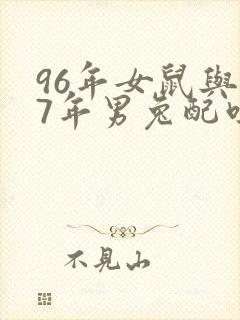 96年女鼠與
7年男兔配
不見山